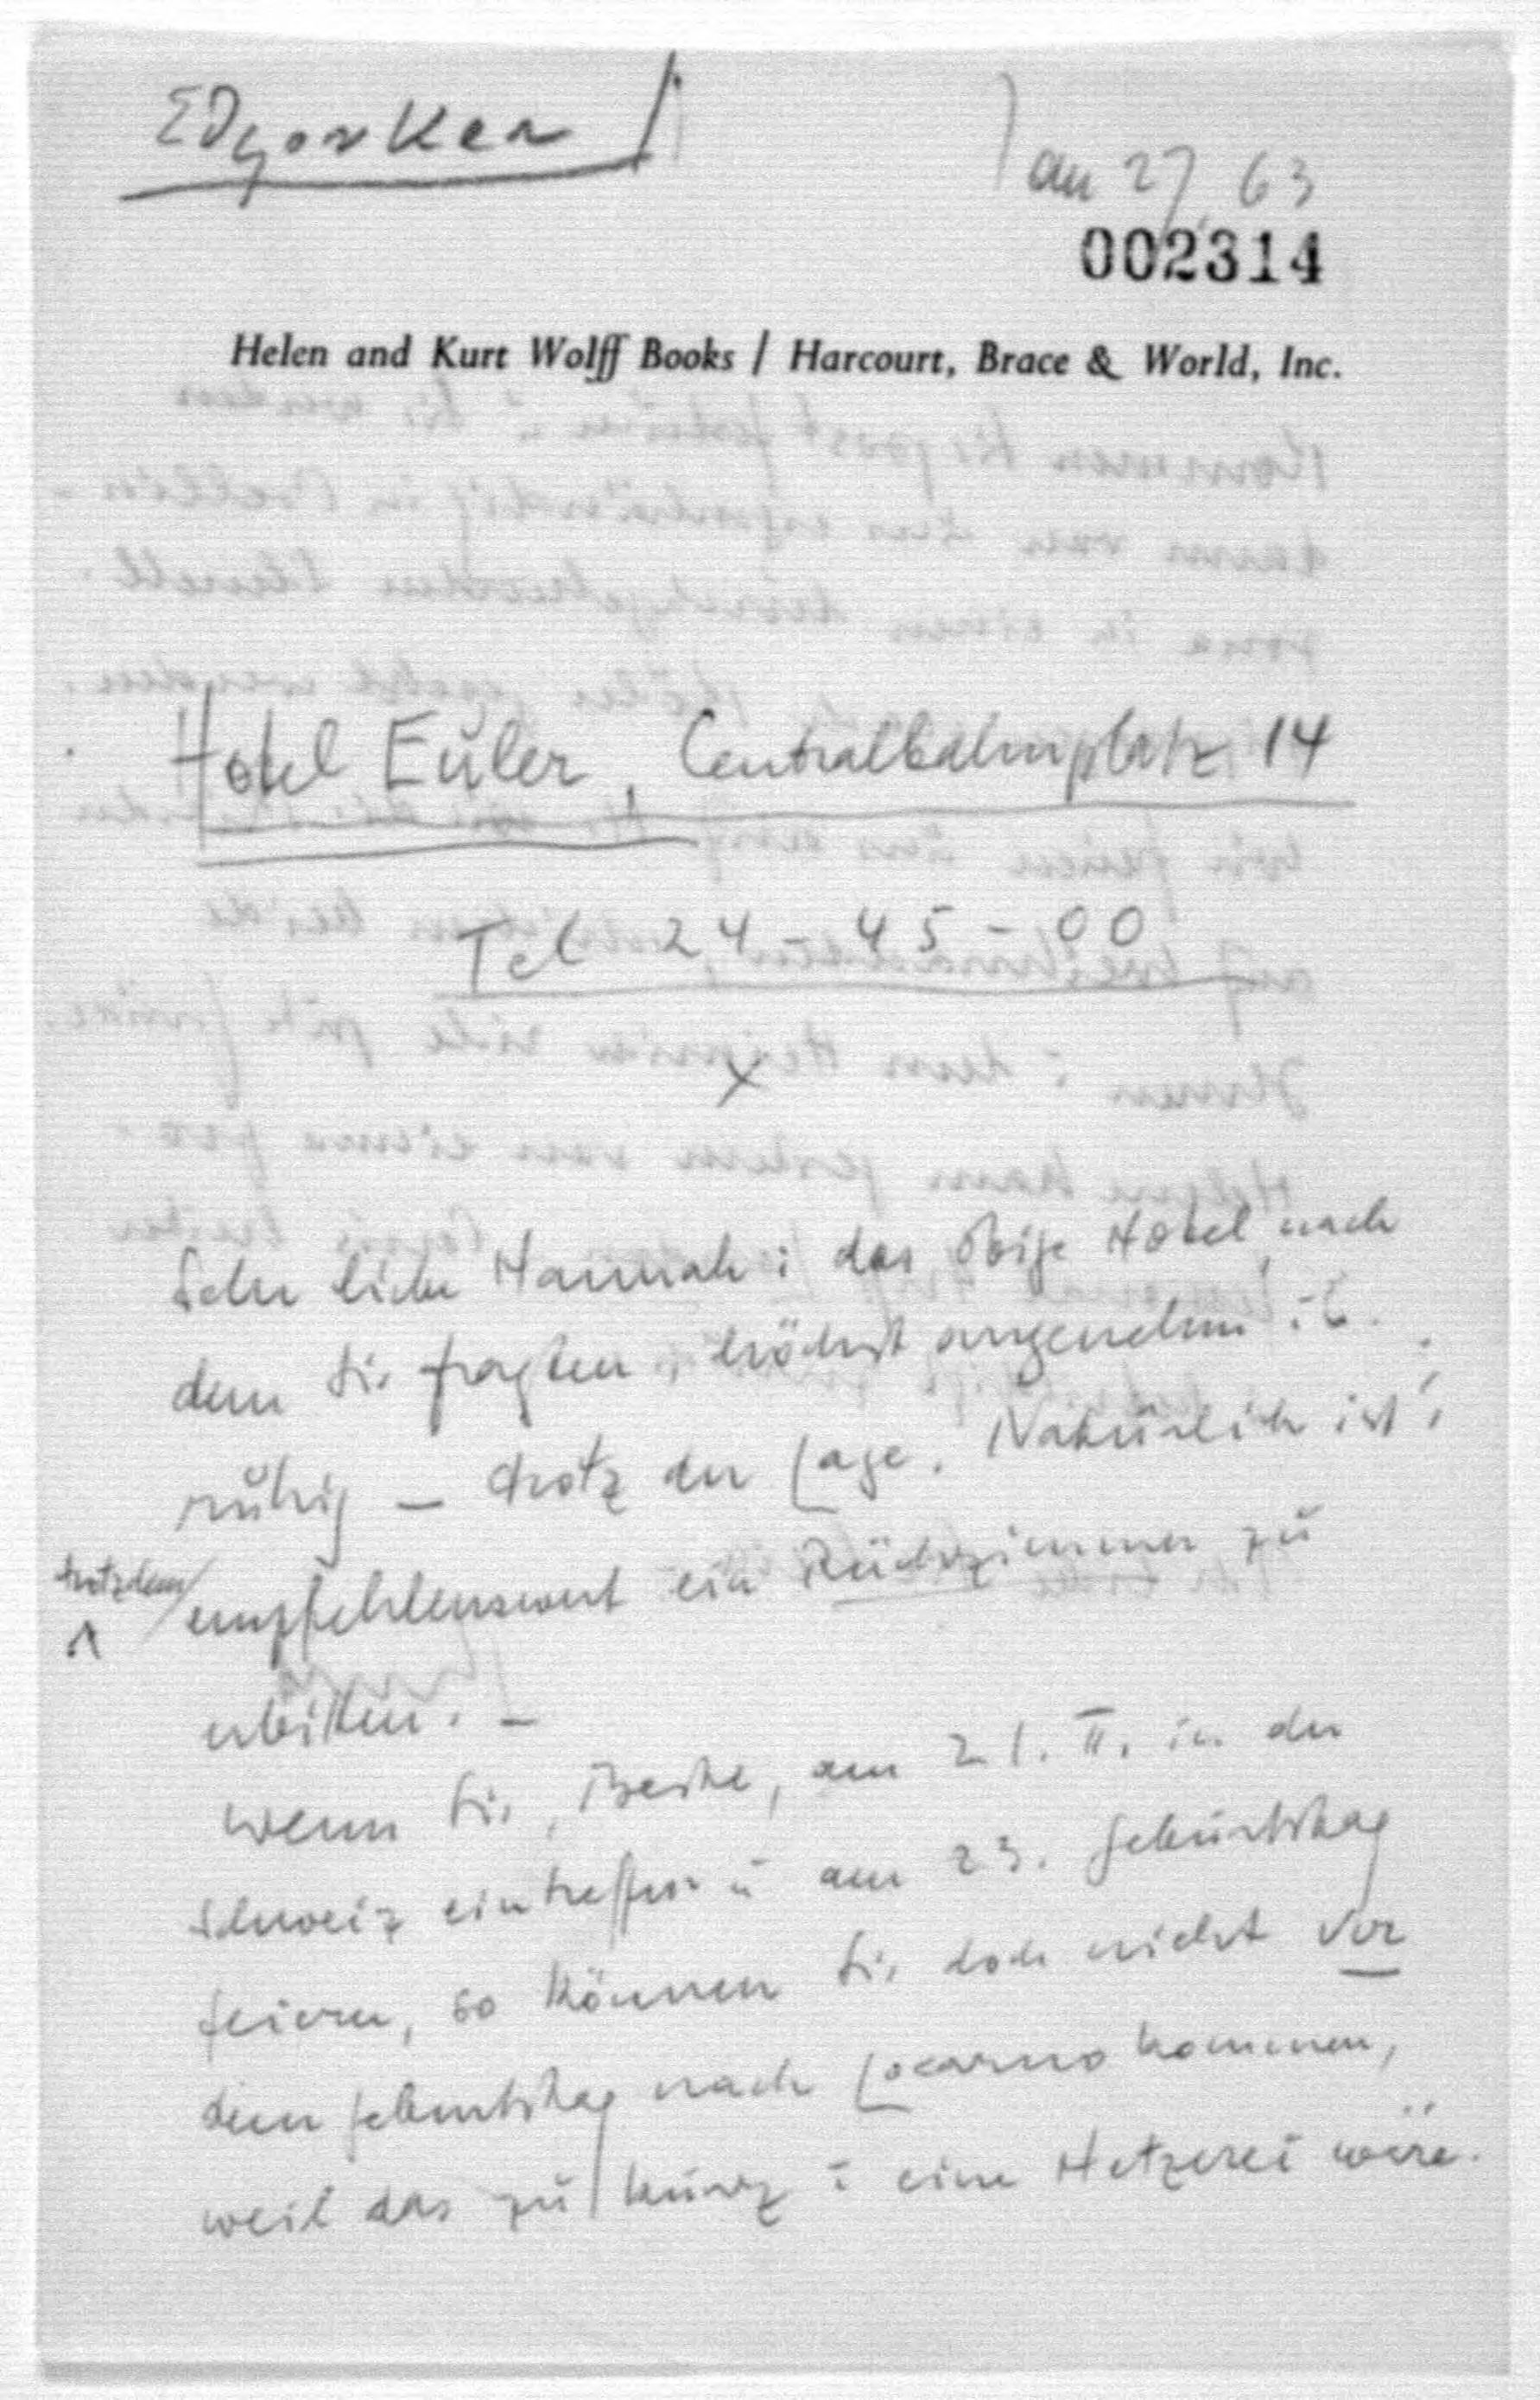 Jan 27, 63
002314
Helen and Kurt Wolff Books / Harcourt, Brace & World, Inc.
Hotel Euler, Centralbahnplatz 14
Tel 24-45-00
x
Sehr liebe Hannah: das obige Hotel, nach
dem Sie fragten, höchst angenehm
ruhig – trotz der Lage. Natürlich ist's
trotzdem
empfehlenswert ein Rückzimmer zu
erbitten. –
Wenn Sie, Beste, am 21. II. in der
Schweiz eintreffen u am 23. Geburtstag
feiern, so können Sie doch nicht vor
dem Geburtstag nach Locarno kommen,
weil das zu kurz u eine Hetzerei wäre.